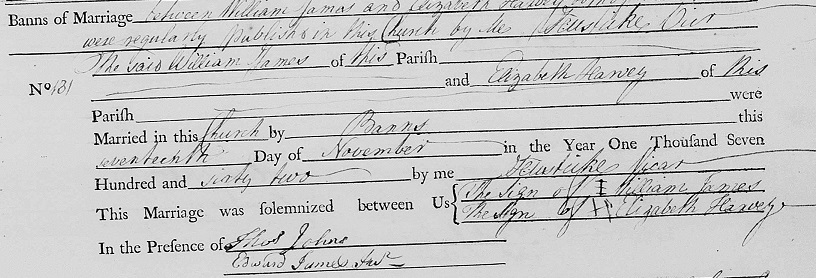 Banns of Marriage between William James and Elizabeth Harvey
were regularly publish'd in this Church by me Vicr
The said William James of this Parish
No 131 and Elizabeth Harvey of this
Parish were
Married in this Church by Banns this
seventeenth Day of November in the Year One Thousand Seven
Hundred and sixty two by me Vicar
This Marriage was solemnized between Us { The Sign of I William James
The Sign of H Elizabeth Harvey
In the Presence of Thos Johns
Edward James Junr